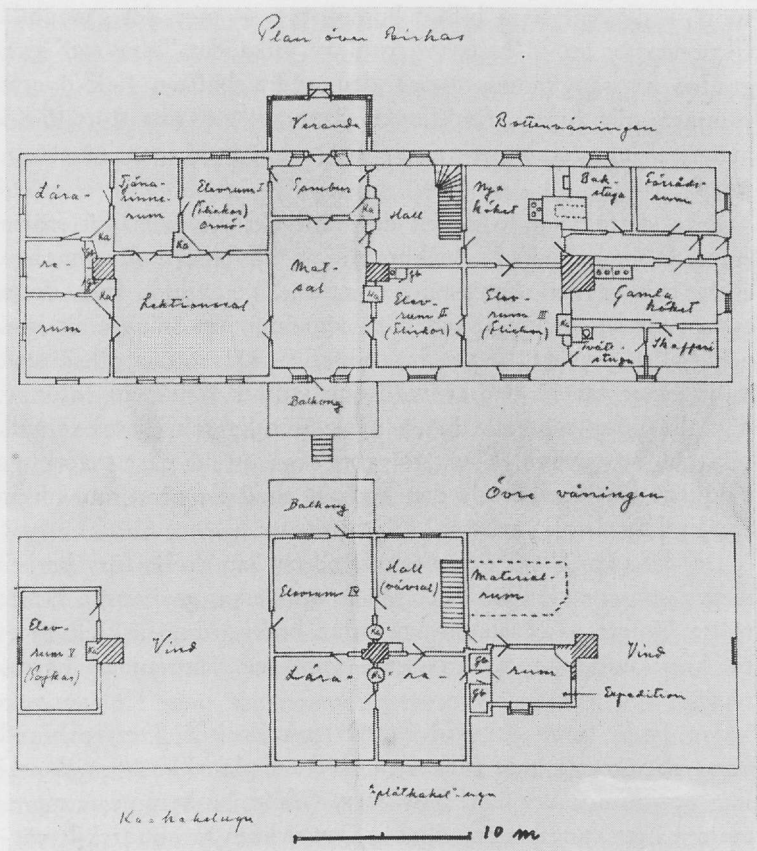 Plan över Birkas
Veranda
Bottenvåningen
Lära-
re-
rum
Tjäna-
rinne-
rum
Elevrum I
(flickor)
Tambur
Hall
Nya
köket
Bak-
stuga
Förråds-
rum
Ka
Ka
Ka
Gb
Ka
Lektionssal
Mat-
sal
Gb
Ka
Elev-
rum II
(flickor)
Elev-
rum III
(flickor)
Ka
Gamla
köket
Tvätt-
stuga
Skafferi
Balkong
Övre våningen
Balkong
Elevrum IV
Hall
(vävsal)
Material-
rum
Elev-
rum V
(Pojkar)
Ka
Vind
Ka
Ka
Lära-
re-
rum
Gb
Gb
Vind
Expedition
"plåtkakel"-ugn
Ka=kakelugn
10 m